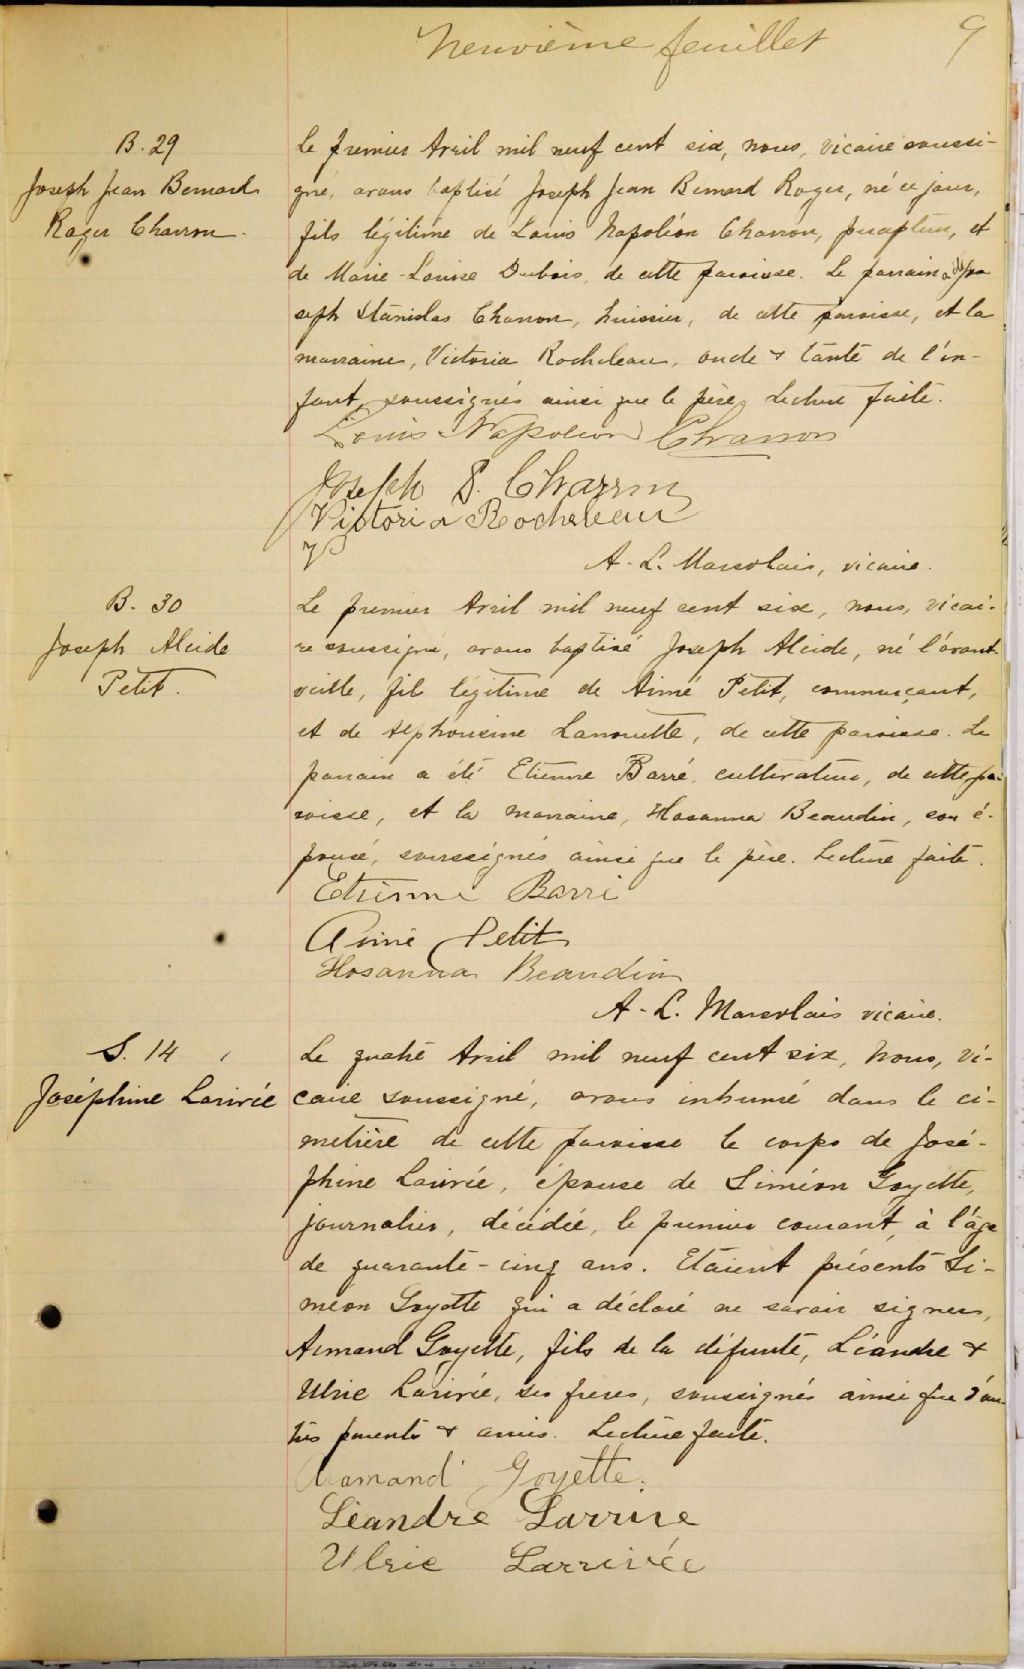 Neuvième feuillet 9
B. 29
Joseph Jean Bernard
Roger Charron.
Le premier Avril mil neuf cent six, nous, vicaire soussi-
gné, avons baptisé Joseph Jean Bernard Roger, né ce jour,
fils légitime de Louis Napoléon Charron, percepteur, et
de Marie-Louise Dubois, de cette paroisse. Le parrain a été Jo
seph Stanislas Charron, huissier, de cette paroisse, et la
marraine, Victoria Rocheleau, oncle & tante de l'en-
fant, soussignés ainsi que le père. Lecture faite.
Louis Napoleon Charron
Joseph S. Charron
Victoria Rocheleau
A.-L. Marsolais, vicaire.
B. 30
Joseph Alcide
Petit.
Le premier Avril mil neuf cent six, nous, vicai-
re soussigné, avons baptisé Joseph Alcide, né l'avant
veille, fils légitime de Aimé Petit, commerçant,
et de Alphonsine Lanouette, de cette paroisse. Le
parrain a été Etienne Barré, cultivateur, de cette pa-
roisse, et la marraine, Hosanna Beaudin, son é-
pouse, soussignés ainsi que le père. Lecture faite.
Etienne Barri
Aimé Petit
Hosanna Beaudin
A.-L. Marsolais vicaire.
S. 14
Joséphine Larivée
Le quatre Avril mil neuf cent six, nous, vi-
caire soussigné, avons inhumé dans le ci-
metière de cette paroisse le corps de José-
phine Larivée, épouse de Siméon Goyette,
journalier, décédée, le premier courant, à l'âge
de quarante-cinq ans. Etaient présents Si-
méon Goyette qui a déclaré ne savoir signer,
Armand Goyette, fils de la défunte, Léandre &
Ulric Larivée, ses frères, soussignés ainsi que d'au-
tres parents & amis. Lecture faite.
Armand Goyette.
Léandre Larrive
Ulric Larrivée